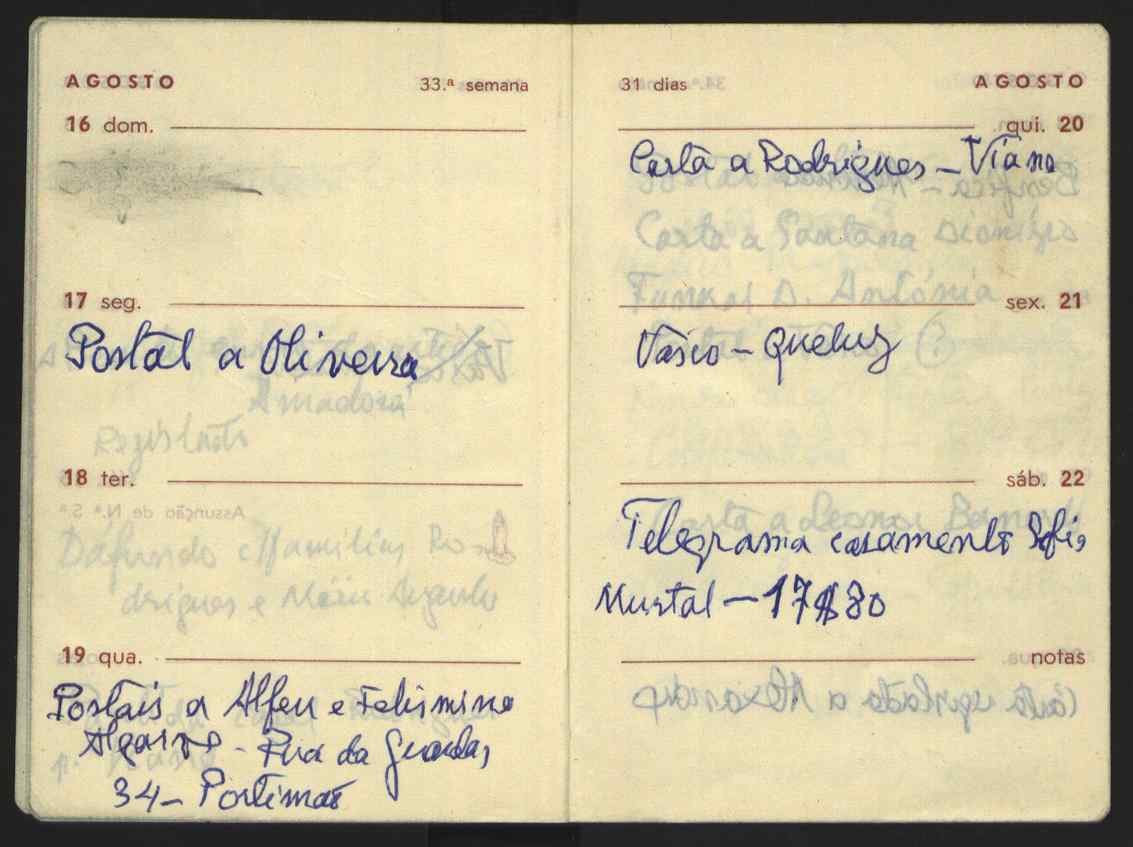 AGOSTO
33.ª semana
16 dom.
17 seg.
Postal a Oliveira
Amadora
Registado
18 ter.
19 qua.
Postais a Alfeu e Felismina
Algarve - Rua da Guarda,
34 - Portimão
31 dias
AGOSTO
qui. 20
Carta a Rodrigues - Viana
Carta a Santana Dionísio
Funeral D. Antónia
sex. 21
Vasco - Queluz
sáb. 22
Telegrama casamento Sofia
Murtal - 17$80
notas